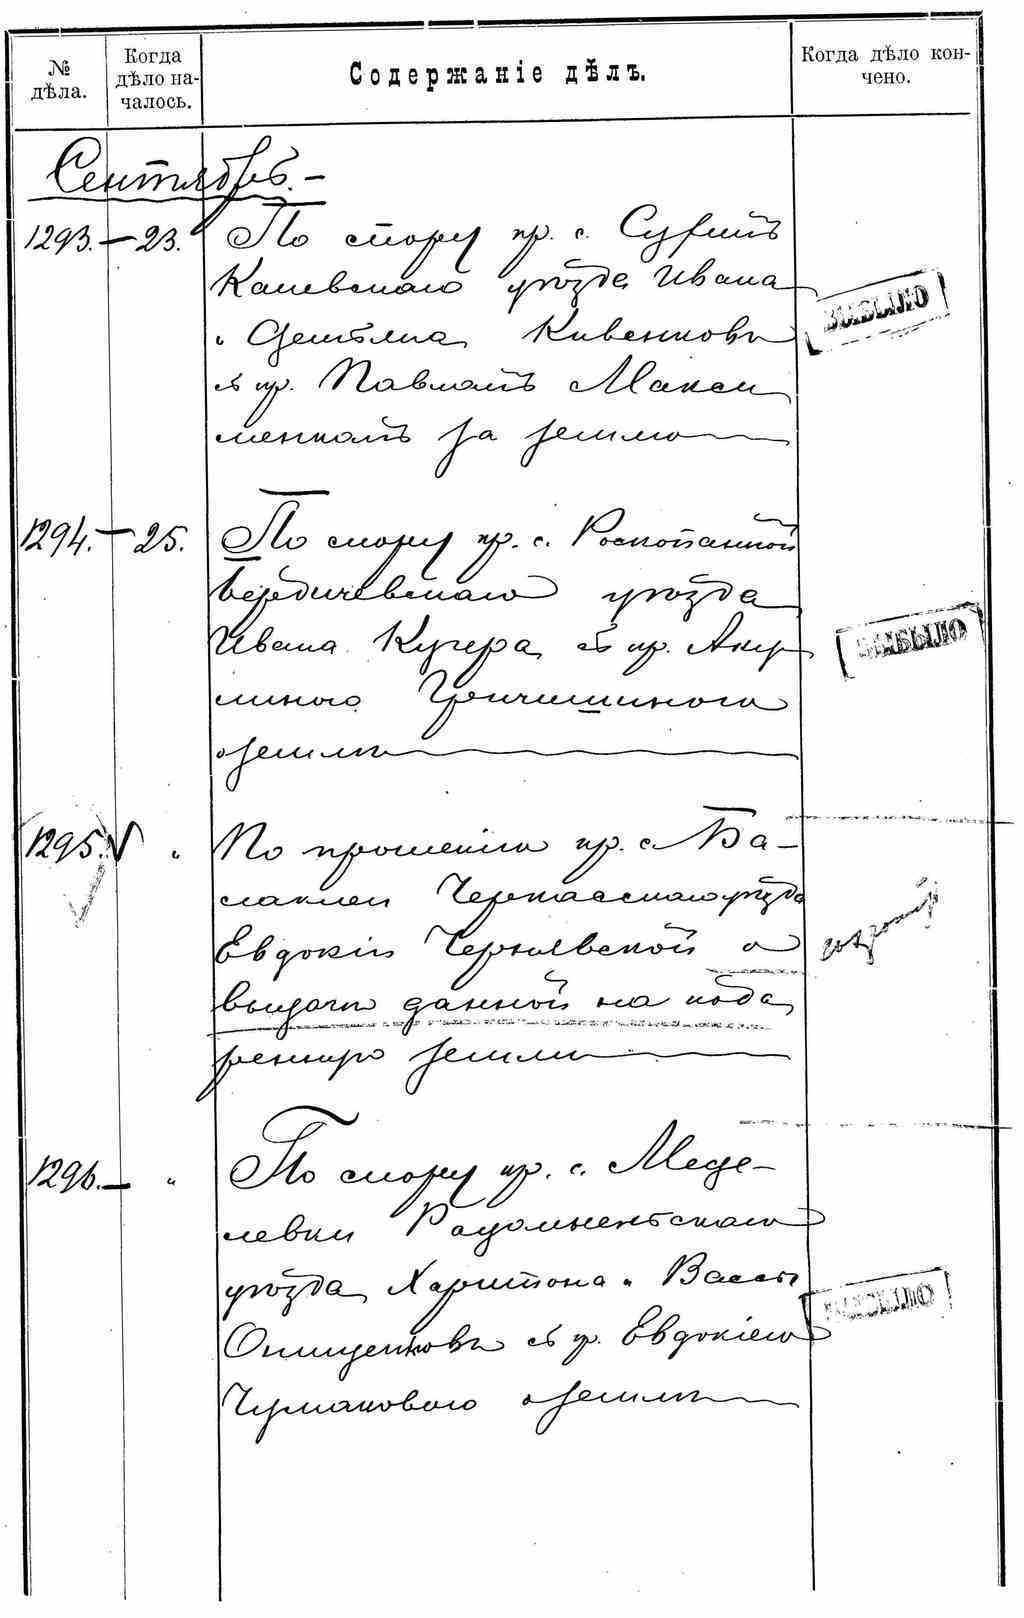 № дѣла.
Когда дѣло на-
чалось.
Содержаніе дѣлъ.
Когда дѣло кон-
чено.
Сентябрь.-
1293. - 23. По спору кр. с.
Каневскаго уѣзда Ивана
и Демьяна Кивенковъ
съ кр. Павломъ Макси
менкомъ за землю
ВЫБЫЛО
1294. - 25. По спору кр. с. Роскопанной
Бердичевскаго уѣзда
Ивана Кучера съ кр. Аку
линою Гречишиною
о землѣ
ВЫБЫЛО
1295. V " По прошенію кр. с. Ба-
лаклеи Черкасскаго уѣзда
Евдокіи Чернявской о
выдачѣ данной на пода
ренную землю
1296. - " По спору кр. с. Меде-
левки Радомысльскаго
уѣзда Харитона и Вассы
Онищенковъ съ кр. Евдокіею
Чумаковою о землѣ
ВЫБЫЛО